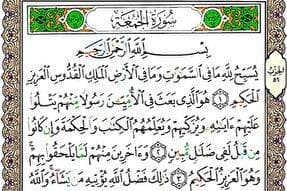 سُورَةُ الْجُمُعَةِ
بِسْمِ اللَّهِ الرَّحْمَٰنِ الرَّحِيمِ
يُسَبِّحُ لِلَّهِ مَا فِي السَّمَٰوَٰتِ وَمَا فِي الْأَرْضِ الْمَلِكِ الْقُدُّوسِ الْعَزِيزِ
الْحَكِيمِ ۝١ هُوَ الَّذِي بَعَثَ فِي الْأُمِّيِّينَ رَسُولًا مِّنْهُمْ يَتْلُوا
عَلَيْهِمْ ءَايَٰتِهِ وَيُزَكِّيهِمْ وَيُعَلِّمُهُمُ الْكِتَٰبَ وَالْحِكْمَةَ وَإِن كَانُوا
مِن قَبْلُ لَفِي ضَلَٰلٍ مُّبِينٍ ۝٢ وَءَاخَرِينَ مِنْهُمْ لَمَّا يَلْحَقُوا بِهِمْ
وَهُوَ الْعَزِيزُ الْحَكِيمُ ۝٣ ذَٰلِكَ فَضْلُ اللَّهِ يُؤْتِيهِ مَن يَشَاءُ وَاللَّهُ